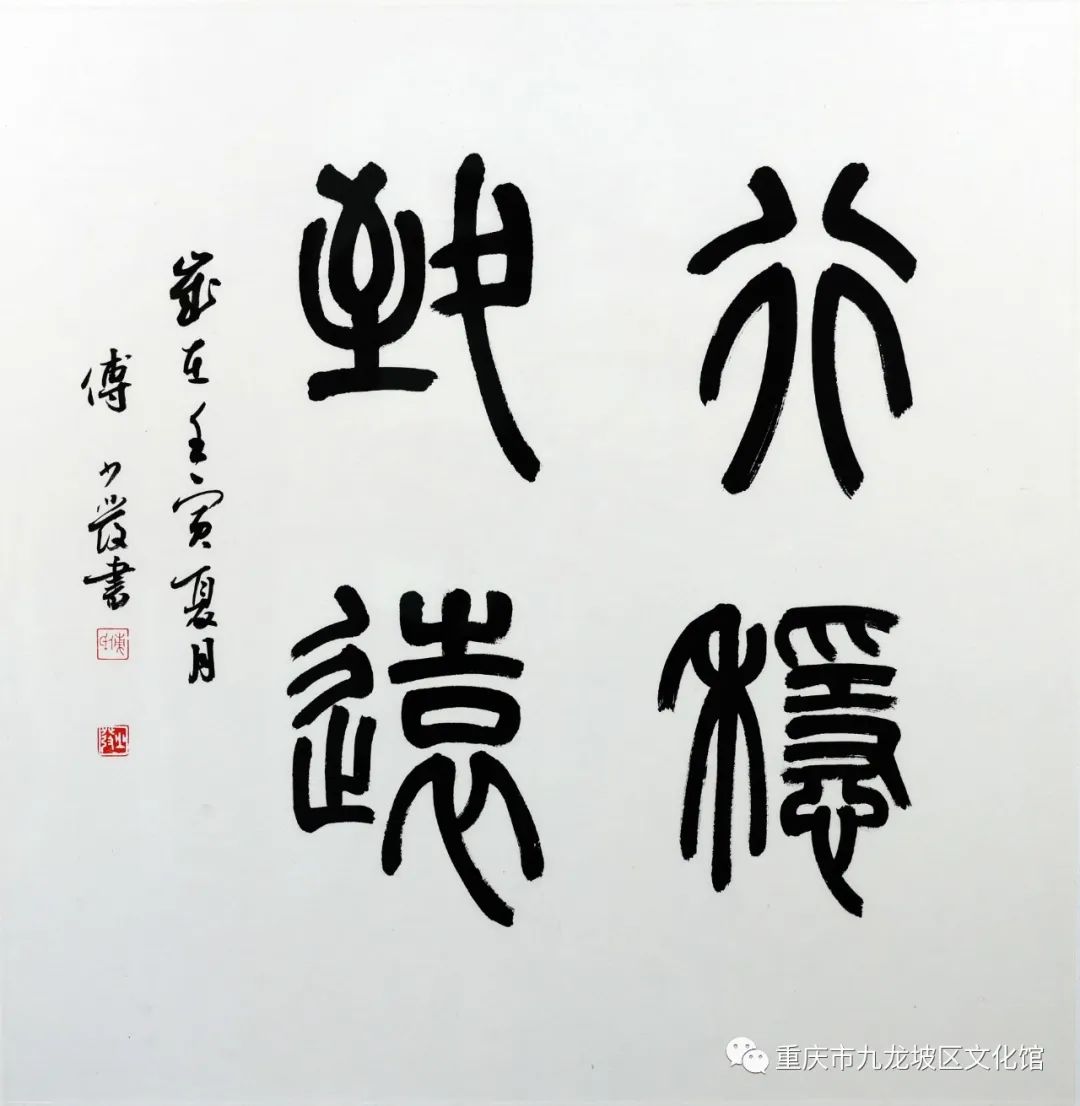 行穩
致遠
歲在壬寅夏月
傅少發書
重庆市九龙坡区文化馆